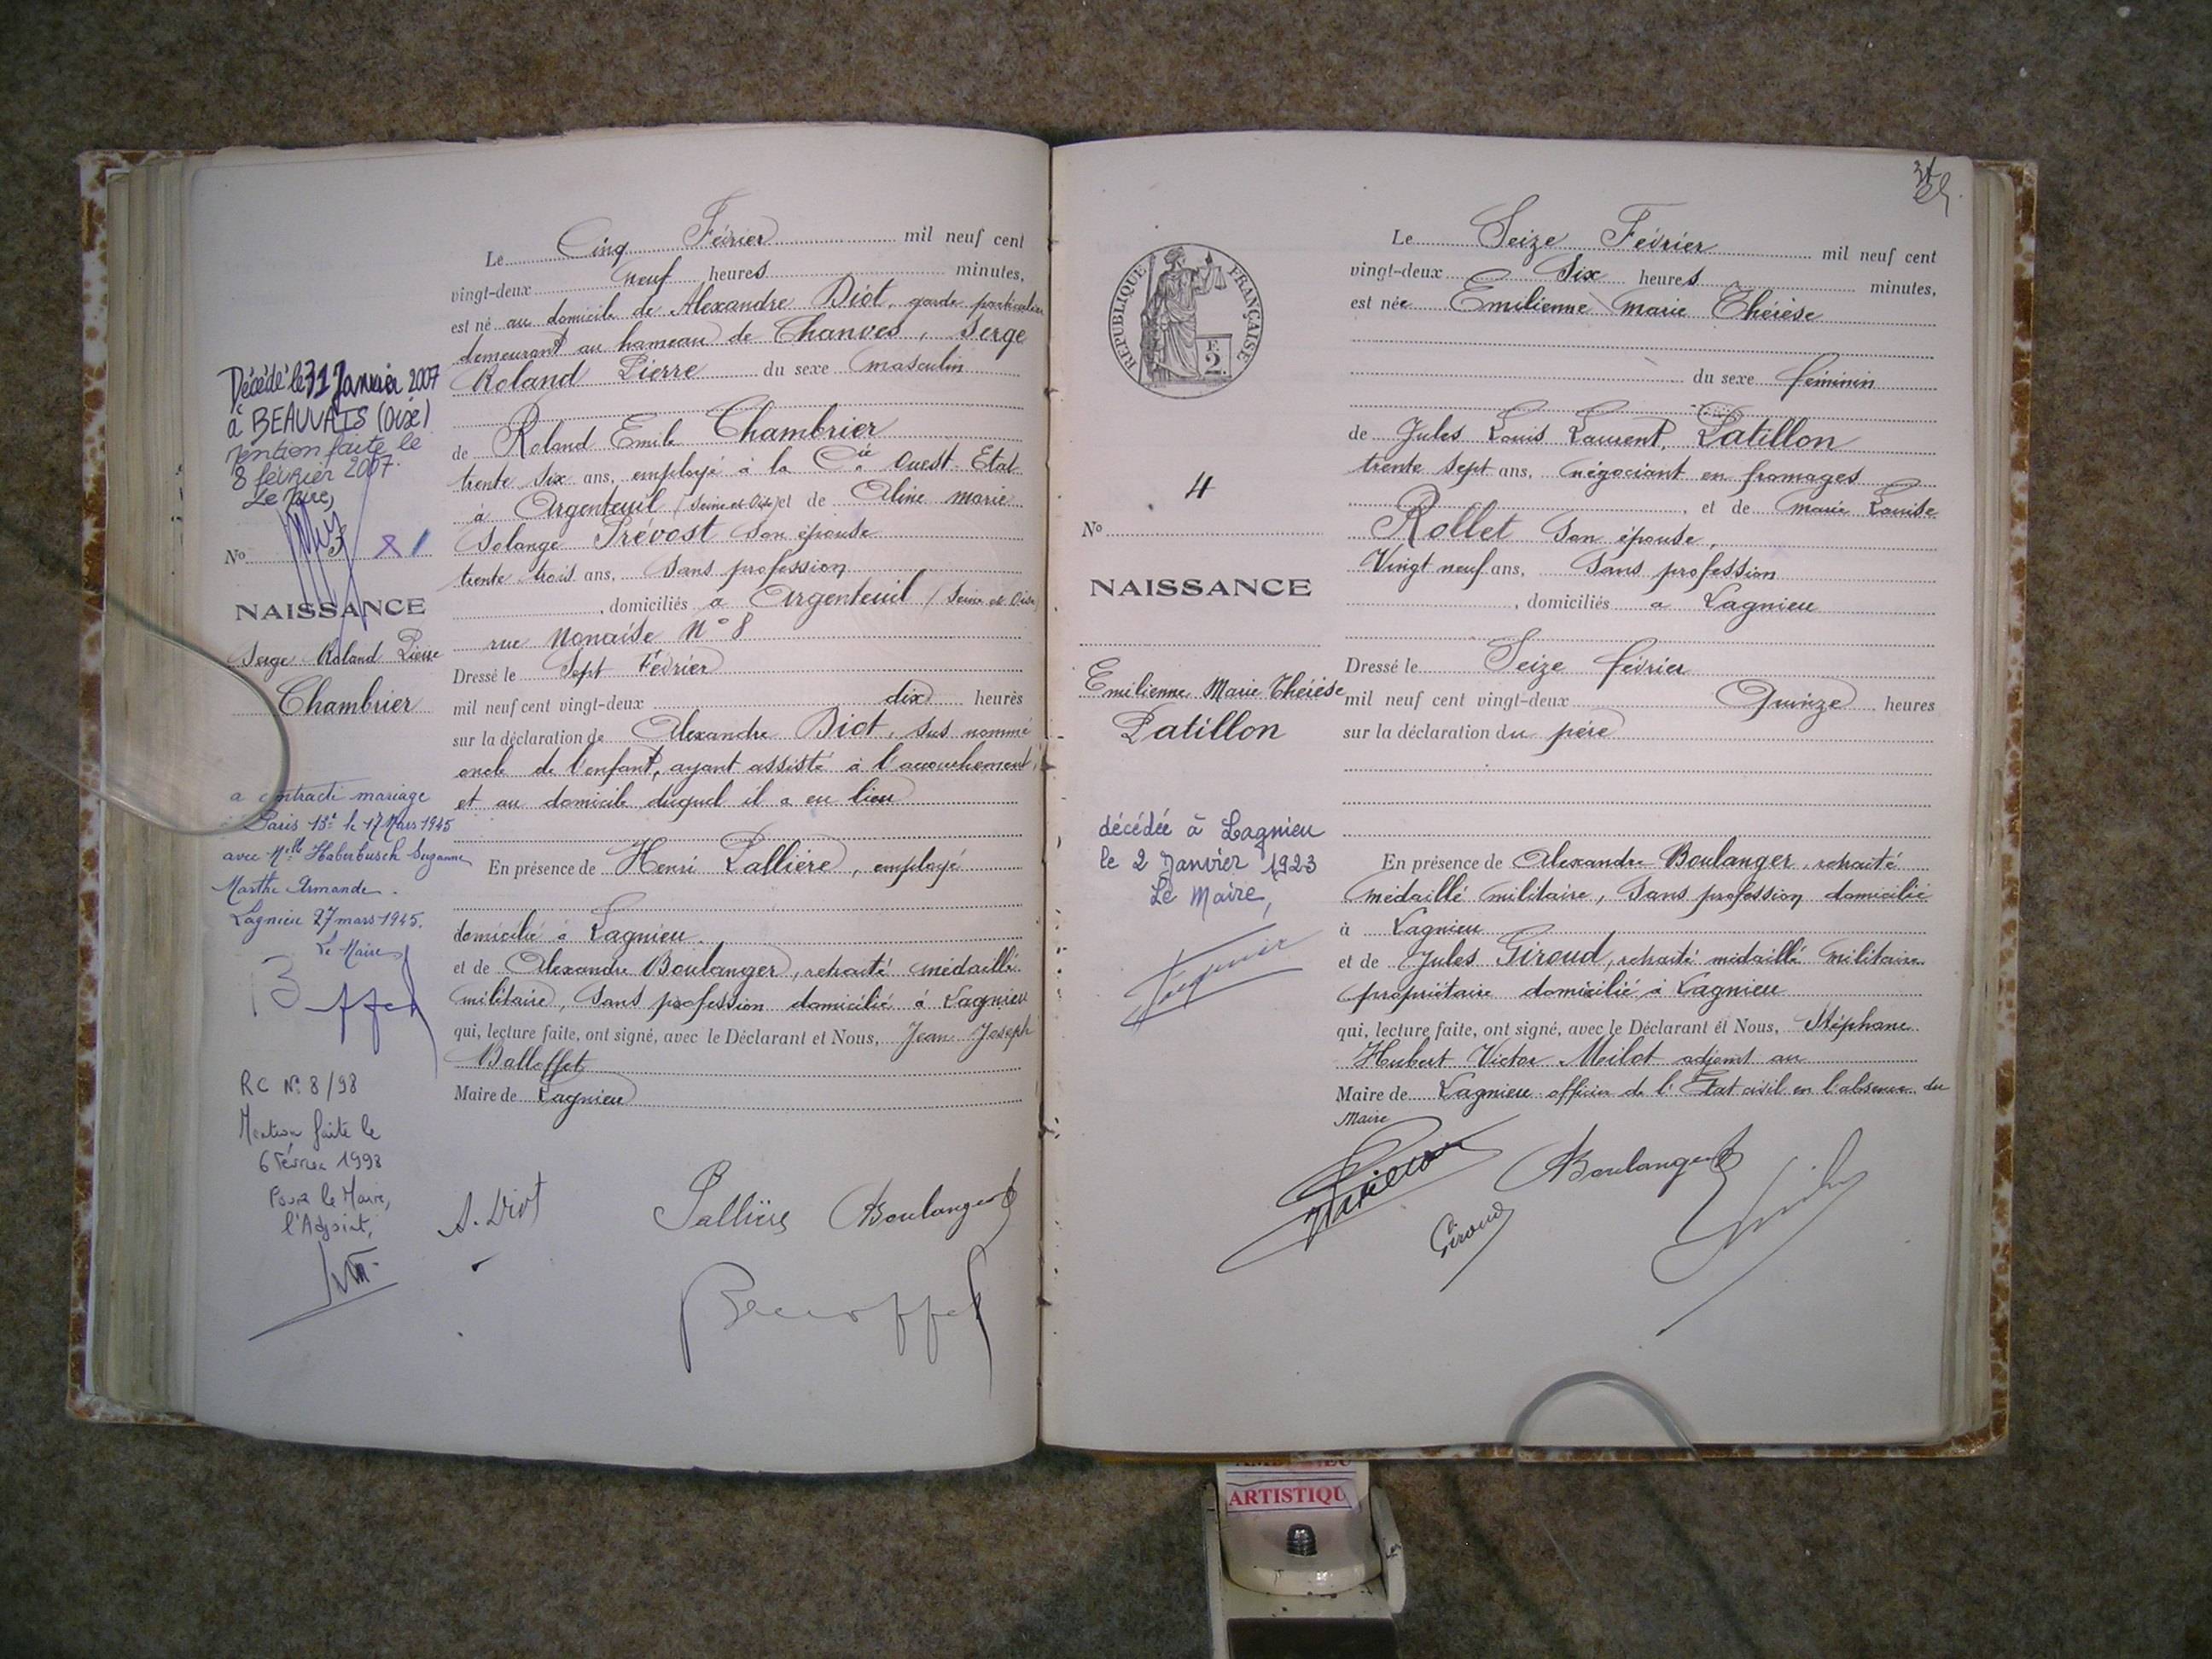 Décédé le 31 Janvier 2007
à BEAUVAIS (Oise)
mention faite le
8 février 2007.
Le Maire,
No 3
NAISSANCE
Serge Roland Pierre
Chambrier
a contracté mariage
à Paris 13e le 17 Mars 1945
avec Melle Haberbusch Suzanne
Marthe Armande.
Lagnieu 27 mars 1945.
Le Maire
RC No 8/98
Mention faite le
6 Février 1998
Pour le Maire,
l'Adjoint,
Le Cinq Février mil neuf cent
vingt-deux neuf heures minutes,
est né au domicile de Alexandre Diot, garde particulier
demeurant au hameau de Chanves, Serge
Roland Pierre du sexe masculin
de Roland Emile Chambrier
trente six ans, employé à la Cie Ouest-Etat
à Argenteuil (Seine et Oise) et de Aline marie
Solange Prévost son épouse
trente trois ans, sans profession
, domiciliés à Argenteuil (Seine et Oise)
rue Monaise No 8
Dressé le Sept Février
mil neuf cent vingt-deux dix heures
sur la déclaration de Alexandre Diot, sus nommé
oncle de l'enfant, ayant assisté à l'accouchement
et au domicile duquel il a eu lieu
En présence de Henri Pallière, employé
domicilié à Lagnieu.
et de Alexandre Boulanger, retraité médaillé
militaire, sans profession domicilié à Lagnieu
qui, lecture faite, ont signé, avec le Déclarant et Nous, Jean Joseph
Balloffet
Maire de Lagnieu
A. Diot Pallière Boulanger
RÉPUBLIQUE FRANÇAISE
2 F.
4
No
NAISSANCE
Emilienne Marie Thérèse
Patillon
décédée à Lagnieu
le 2 Janvier 1923
Le Maire,
Le Seize Février mil neuf cent
vingt-deux Six heures minutes,
est née Emilienne Marie Thérèse
du sexe féminin
de Jules Louis Laurent, Patillon
trente sept ans, négociant en fromages
, et de Marie Louise
Rollet son épouse,
Vingt neuf ans, Sans profession
, domiciliés à Lagnieu
Dressé le Seize février
mil neuf cent vingt-deux Quinze heures
sur la déclaration du père
En présence de Alexandre Boulanger, retraité
médaillé militaire, sans profession domicilié
à Lagnieu
et de Jules Giroud, retraité médaillé militaire
propriétaire domicilié à Lagnieu
qui, lecture faite, ont signé, avec le Déclarant et Nous, Stéphane
Hubert Victor Milot adjoint au
Maire de Lagnieu officier de l'Etat civil en l'absence du
Maire
Patillon Giroud Boulanger
ARTISTIQU